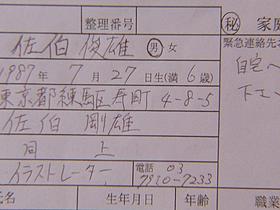 整理番号
㊙ 家庭
佐伯 俊雄 男 女
緊急連絡先
1987 年 7 月 27 日生(満 6 歳)
自宅へ
東京都練馬区寿町 4-8-5
佐伯 剛雄
同 上
イラストレーター 電話 03
7950-7233
氏名 生年月日 年齢 職業